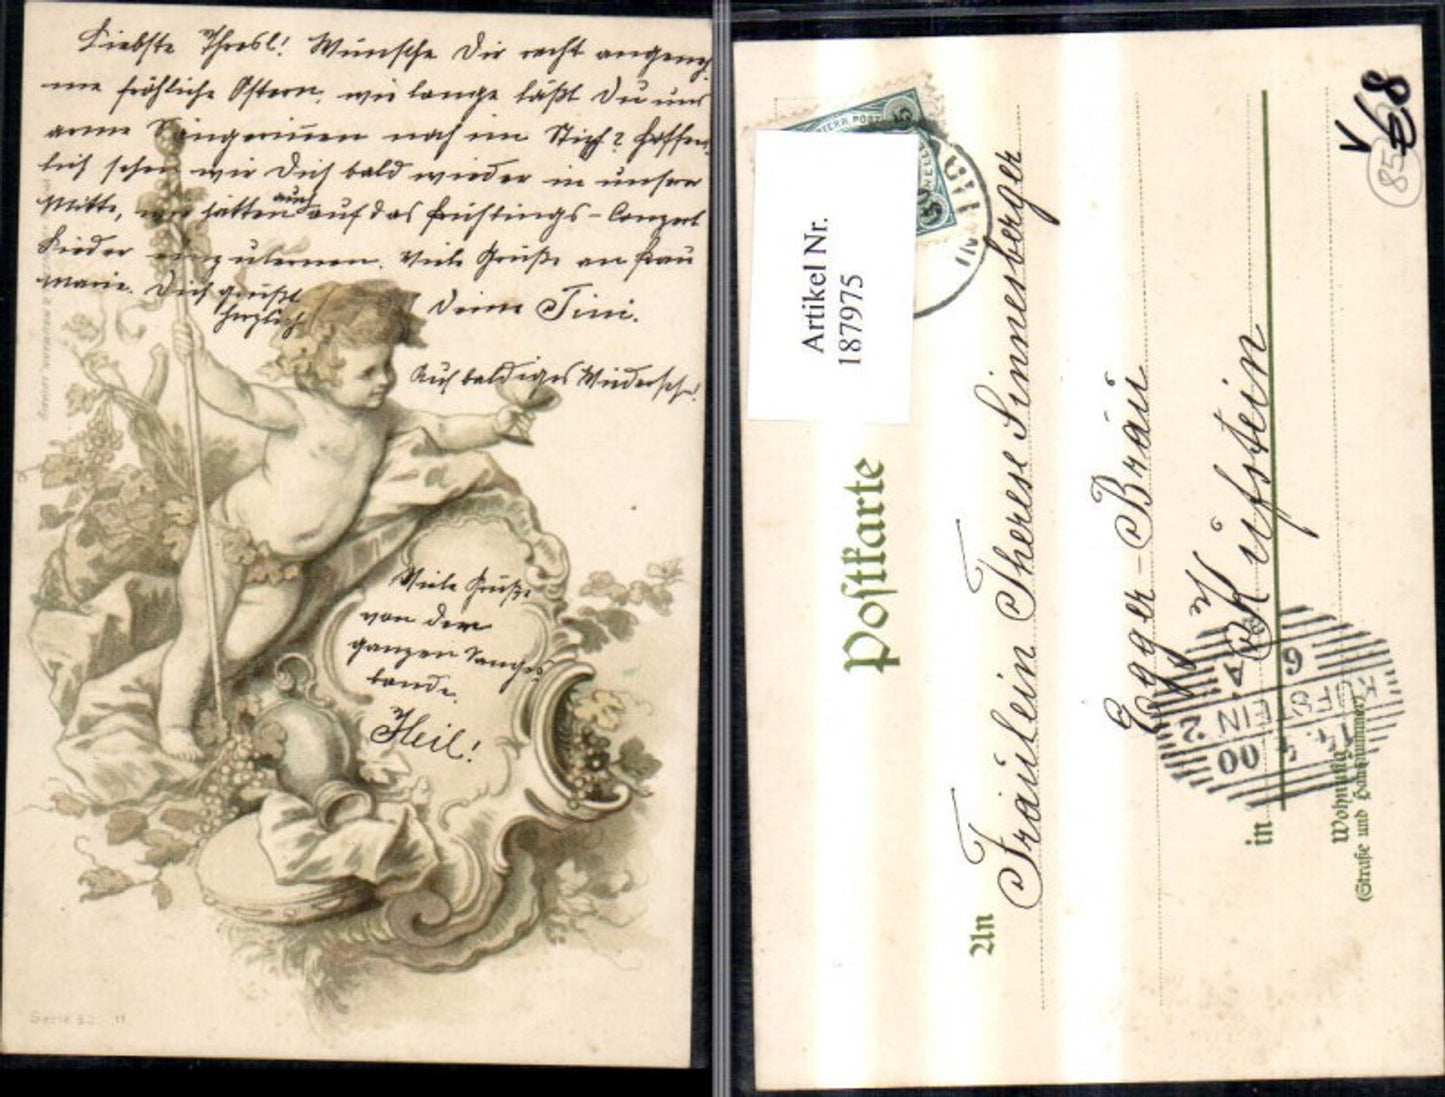 Liebste Thresl! Wünsche Dir recht angeneh-
me fröhliche Ostern, wie lange läßt Du uns
arme Sängerinnen noch im Stich? Hoffent-
lich sehen wir Dich bald wieder in unserer
Mitte, wir hätten auch auf das Frühlings-Conzert
Lieder einzulernen. Viele Grüße an Frau
Marie. Dich grüßt
herzlich
Deine Tini.
Auf baldiges Wiederseh.!
Viele Grüße
von der
ganzen Sanges
bande.
Heil!
Serie 11
Postkarte
Artikel Nr.
187975
An Fräulein Therese Sinnesberger
Egger-Bräu
in Kufstein
Wohnung
(Straße und Hausnummer)
85
V 68